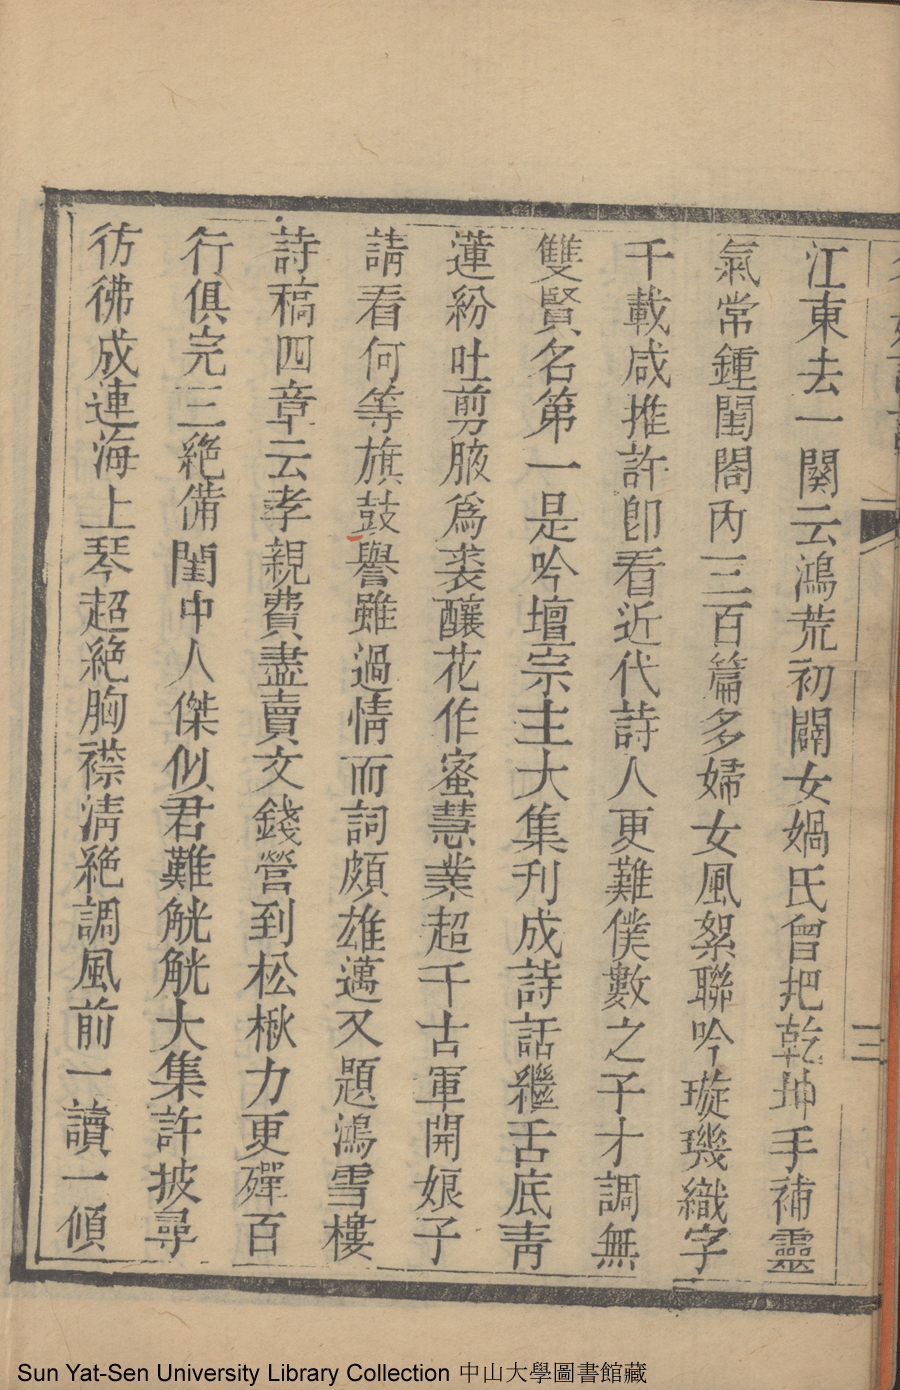 江東去一闋云鴻荒初闢女媧氏曾把乾坤手補靈
氣常鍾閨閤內三百篇多婦女風絮聯吟璇璣織字
千載咸推許卽看近代詩人更難僕數之子才調無
雙賢名第一是吟壇宗主大集刋成詩話繼舌底靑
蓮紛吐剪腋爲裘釀花作蜜慧業超千古軍開娘子
請看何等旗鼓譽雖過情而詞頗雄邁又題鴻雪樓
詩稿四章云孝親費盡賣文錢營到松楸力更殫百
行俱完三絕備閨中人傑似君難觥觥大集許披尋
彷彿成連海上琴超絕胸襟淸絕調風前一讀一傾
三
Sun Yat-Sen University Library Collection 中山大學圖書館藏